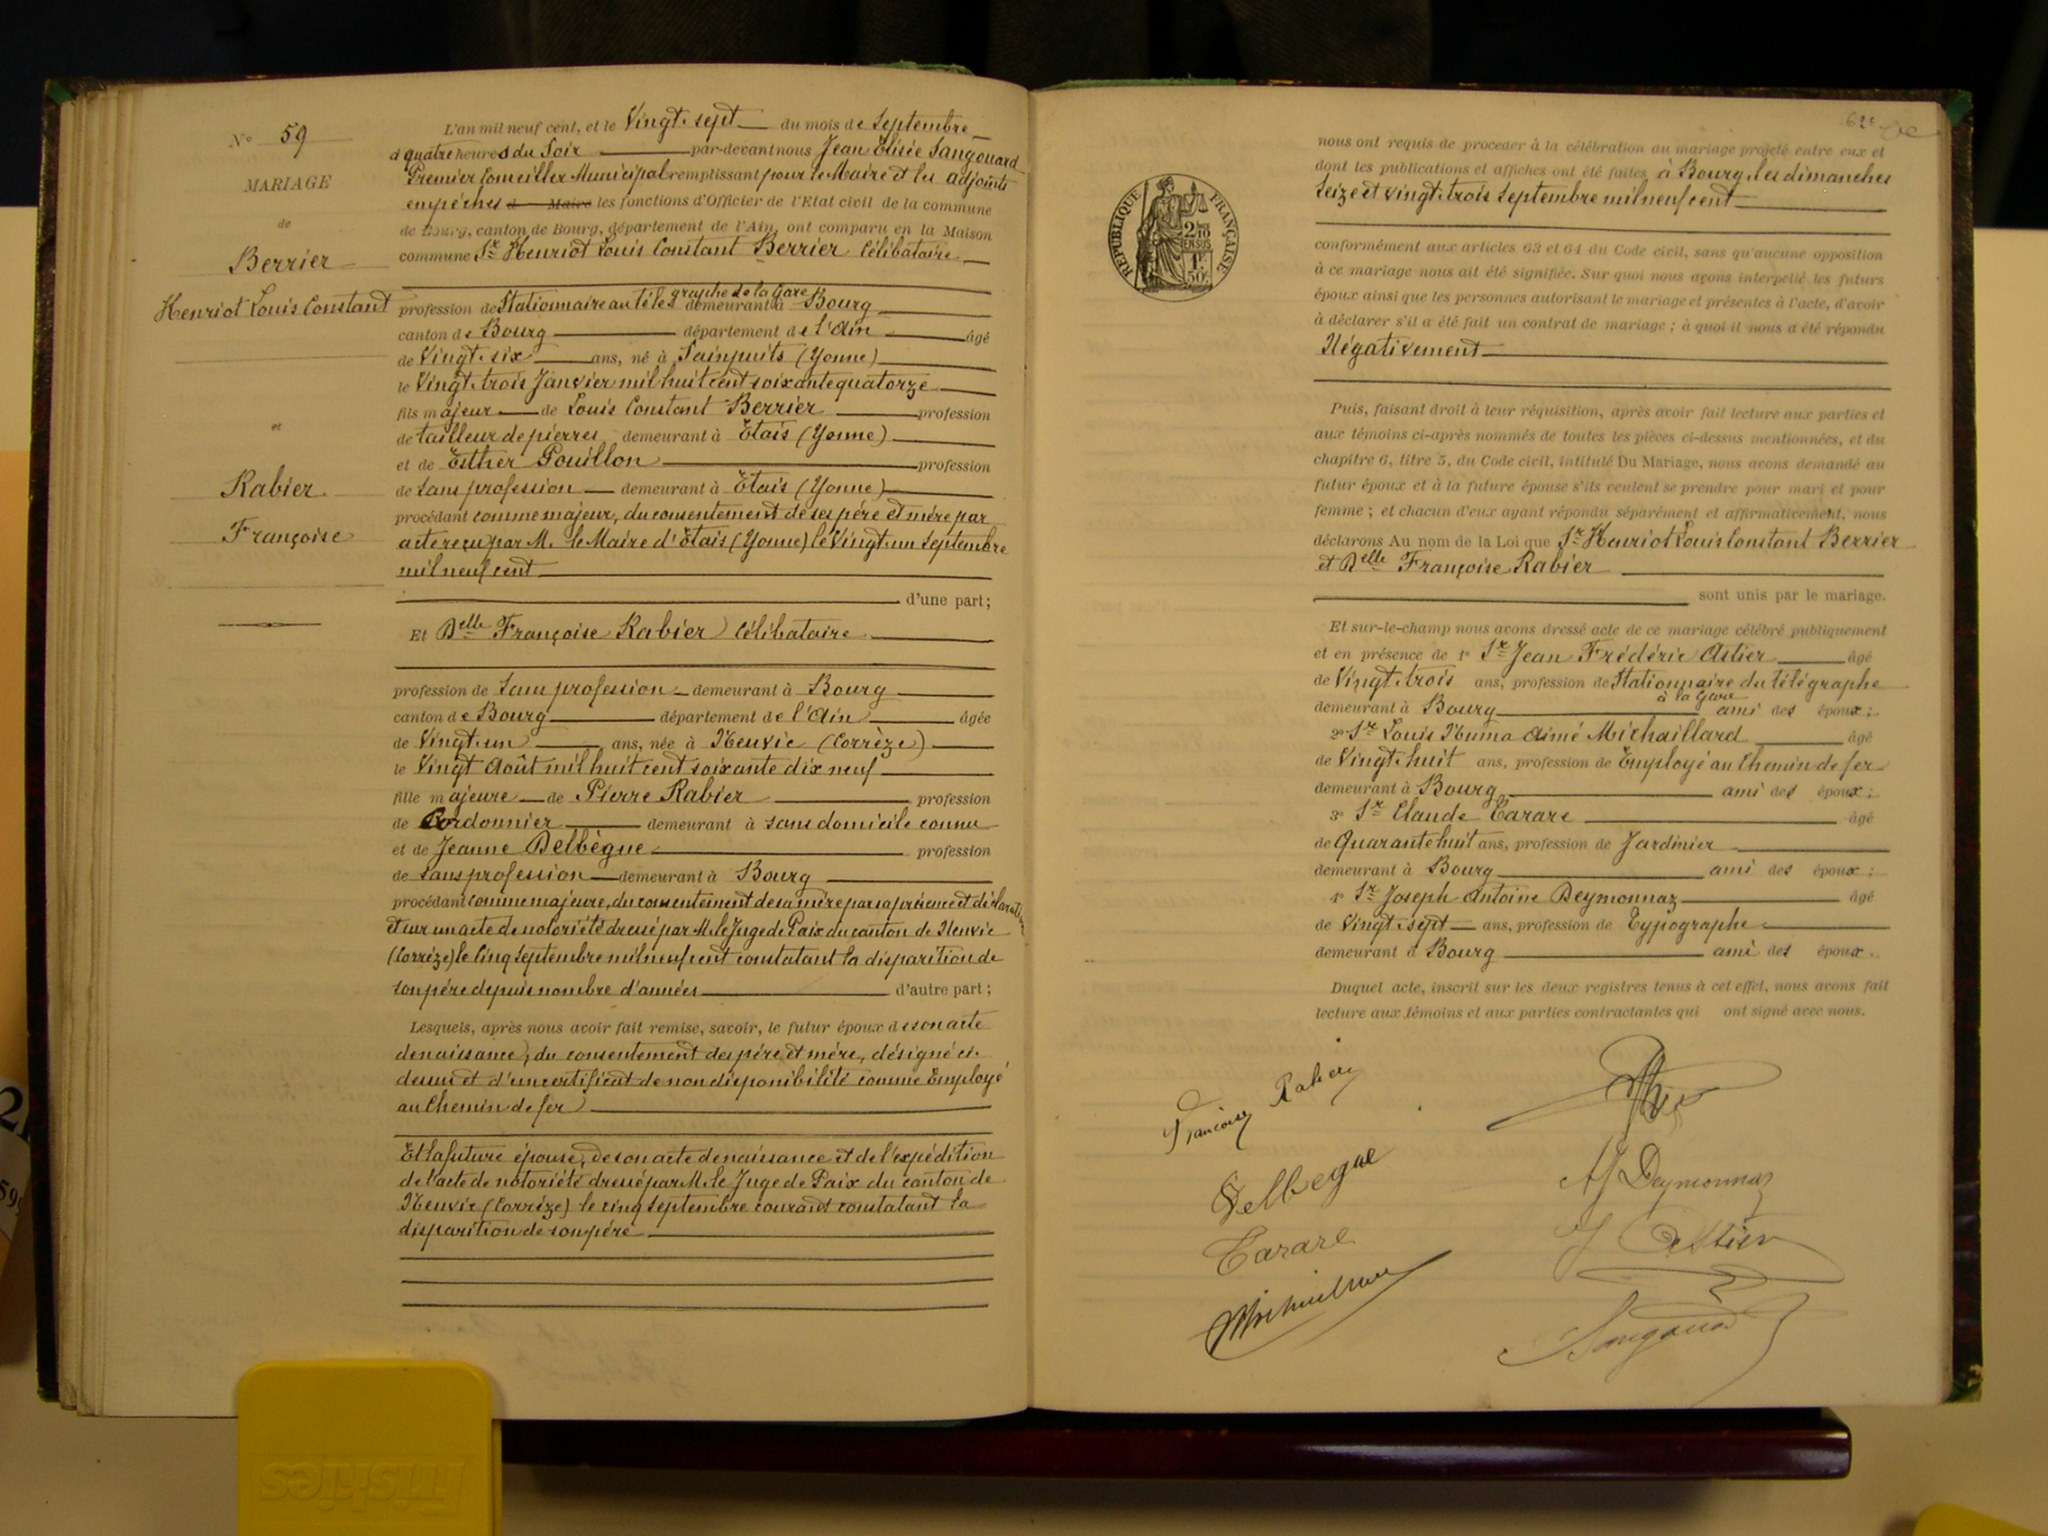 N° 59
MARIAGE
de
Berrier
Henriot Louis Constant
et
Rabier
Françoise
L'an mil neuf cent, et le Vingt-sept du mois de Septembre
à quatre heures du Soir par-devant nous Jean Élisée Sangouard
Premier Conseiller Municipal remplissant pour le Maire et les adjoints
empêchés les fonctions d'Officier de l'Etat civil de la commune
de Bourg, canton de Bourg, département de l'Ain, ont comparu en la Maison
commune Sr. Henriot Louis Constant Berrier Célibataire
profession de Stationnaire au télégraphe de la Gare demeurant à Bourg
canton de Bourg département de l'Ain âgé
de Vingt-six ans, né à Sainpuits (Yonne)
le Vingt-trois Janvier mil huit cent soixante quatorze
fils majeur de Louis Constant Berrier profession
de tailleur de pierres demeurant à Étais (Yonne)
et de Esther Pouillon profession
de Sans profession demeurant à Étais (Yonne)
procédant comme majeur, du consentement de ses père et mère par
acte reçu par M. le Maire d'Étais (Yonne) le Vingt-un Septembre
mil neuf cent
d'une part;
Et Delle Françoise Rabier Célibataire
profession de Sans profession demeurant à Bourg
canton de Bourg département de l'Ain âgée
de Vingt-un ans, née à Neuvic (Corrèze)
le Vingt Août mil huit cent soixante dix neuf
fille majeure de Pierre Rabier profession
de Cordonnier demeurant à sans domicile connu
et de Jeanne Delbègue profession
de Sans profession demeurant à Bourg
procédant comme majeure, du consentement de sa mère par sa présence et déclaration
et sur un acte de notoriété dressé par M. le Juge de Paix du canton de Neuvic
(Corrèze) le Cinq Septembre mil neuf cent constatant la disparition de
son père depuis nombre d'années d'autre part;
Lesquels, après nous avoir fait remise, savoir, le futur époux de son acte
de naissance, du consentement des père et mère, désigné ci-
dessus et d'un certificat de non disponibilité comme Employé
au Chemin de fer
Et la future épouse, de son acte de naissance et de l'expédition
de l'acte de notoriété dressé par M. le Juge de Paix du canton de
Neuvic (Corrèze) le cinq Septembre courant constatant la
disparition de son père
62e
RÉPUBLIQUE FRANÇAISE
2/10 EN SUS
1F 50c
nous ont requis de procéder à la célébration du mariage projeté entre eux et
dont les publications et affiches ont été faites à Bourg, les dimanches
Seize et vingt-trois Septembre mil neuf cent
conformément aux articles 63 et 64 du Code civil, sans qu'aucune opposition
à ce mariage nous ait été signifiée. Sur quoi nous avons interpellé les futurs
époux ainsi que les personnes autorisant le mariage et présentes à l'acte, d'avoir
à déclarer s'il a été fait un contrat de mariage; à quoi il nous a été répondu
Négativement
Puis, faisant droit à leur réquisition, après avoir fait lecture aux parties et
aux témoins ci-après nommés de toutes les pièces ci-dessus mentionnées, et du
chapitre 6, titre 5, du Code civil, intitulé Du Mariage, nous avons demandé au
futur époux et à la future épouse s'ils veulent se prendre pour mari et pour
femme; et chacun d'eux ayant répondu séparément et affirmativement, nous
déclarons Au nom de la Loi que Sr. Henriot Louis Constant Berrier
et Delle Françoise Rabier
sont unis par le mariage.
Et sur-le-champ nous avons dressé acte de ce mariage célébré publiquement
et en présence de 1° Sr. Jean Frédéric Astier âgé
de Vingt-trois ans, profession de Stationnaire du télégraphe
à la Gare
demeurant à Bourg ami des époux;
2° Sr. Louis Numa Aimé Michaillard âgé
de Vingt-huit ans, profession de Employé au Chemin de fer
demeurant à Bourg ami des époux;
3° Sr. Claude Tarare âgé
de Quarante huit ans, profession de Jardinier
demeurant à Bourg ami des époux;
4° Sr. Joseph Antoine Deymonnaz âgé
de Vingt-sept ans, profession de Typographe
demeurant à Bourg ami des époux.
Duquel acte, inscrit sur les deux registres tenus à cet effet, nous avons fait
lecture aux témoins et aux parties contractantes qui ont signé avec nous.
Françoise Rabier
Delbegue
AJ Deymonnaz
Tarare
J Astier
Michaillard
Sangouard